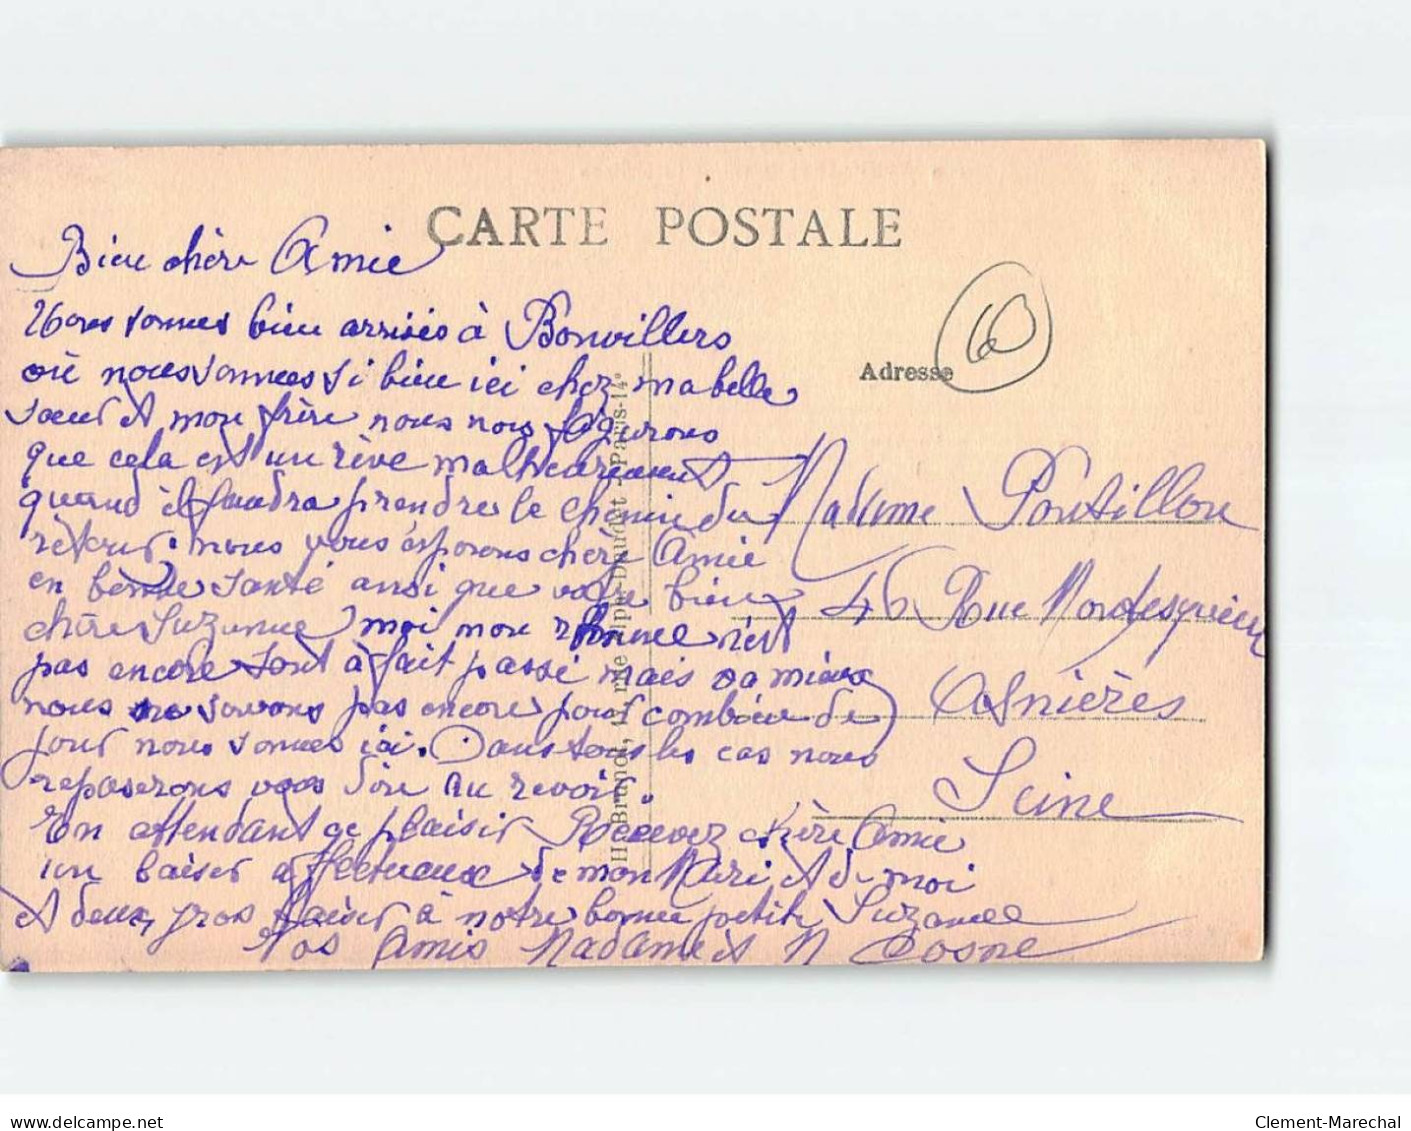 CARTE POSTALE
Bien chère Amie
Nous sommes bien arrivés à Bonvillers
où nous sommes si bien ici chez ma belle
sœur et mon frère nous nous figurons
que cela est un rêve malheureusement
quand il faudra prendre le chemin du
retour. nous vous esperons chère Amie
en bonne santé ainsi que votre bien
chère Suzanne moi mon rhume n'est
pas encore tout à fait passé mais va mieux
nous ne savons pas encore pour combien de
jour nous sommes ici. Dans tous les cas nous
reposerons vous dire au revoir.
En attendant ce plaisir Recevez chère Amie
un baiser affectueux de mon Mari et de moi
et deux gros baiser à notre bonne petite Suzanne
Vos Amis Madame et M Cosne
Adresse
60
Madame Pontillon
46 Rue Montesquieu
Asnières
Seine
Brunot, 17, rue Alph. Daudet - Paris-14e
delcampe.net
Clement-Marechal